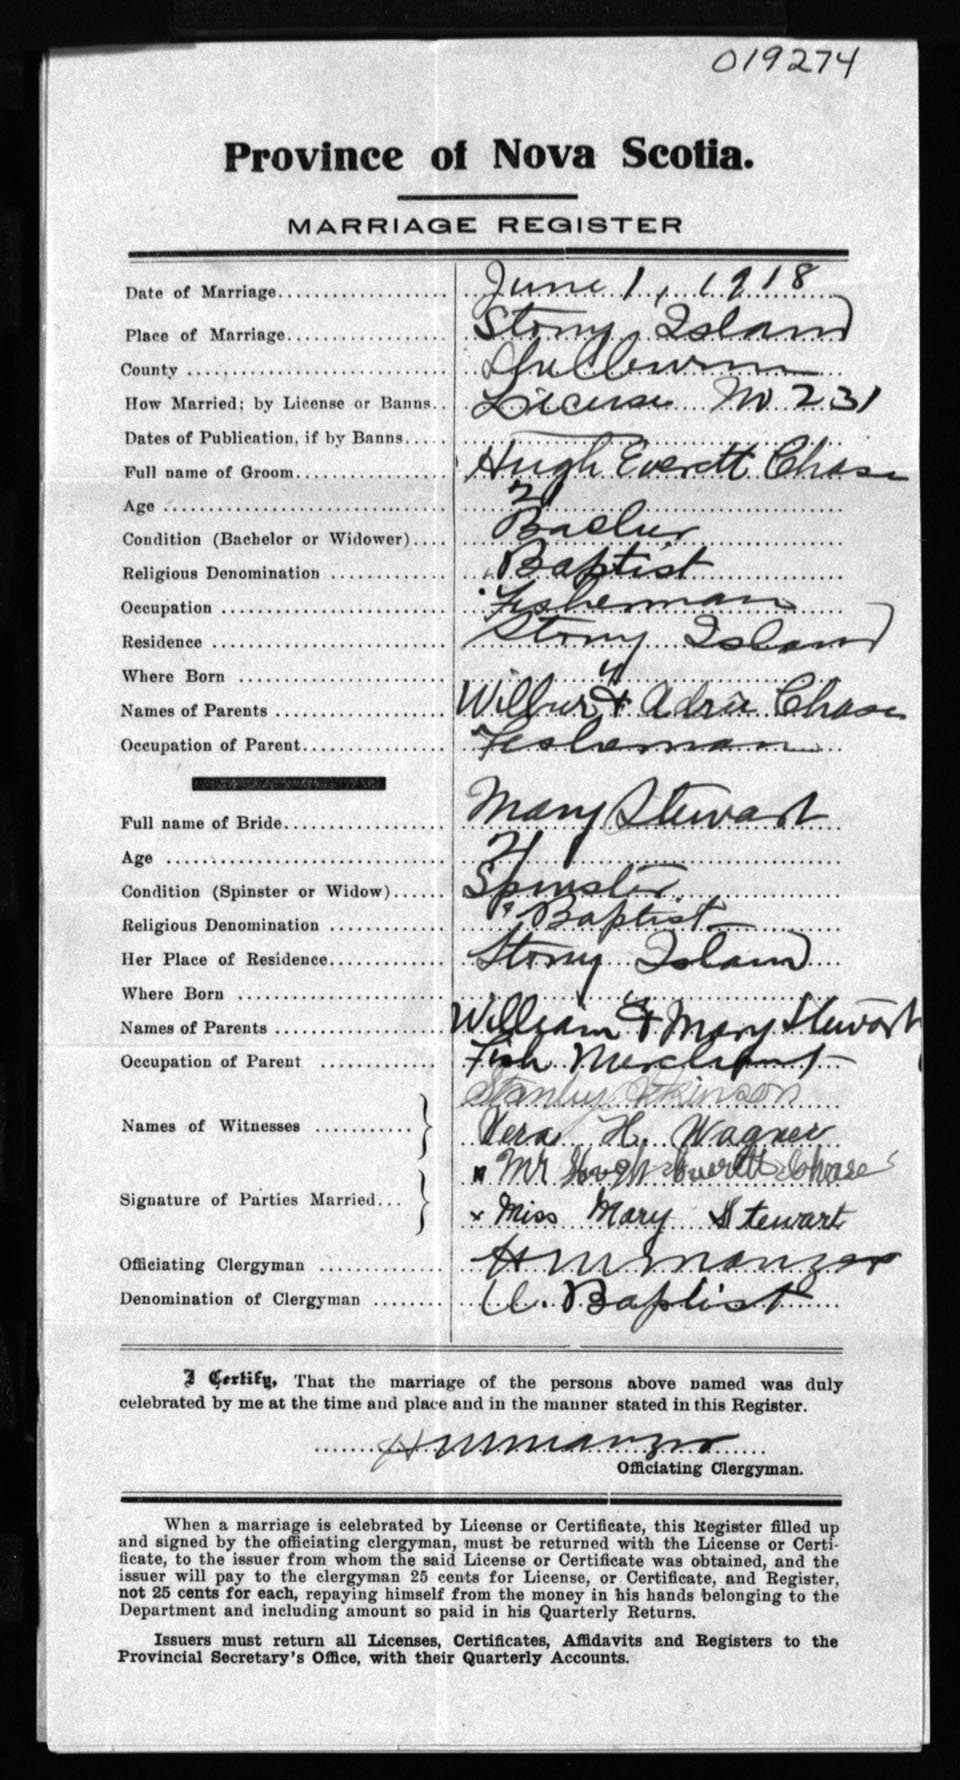 019274
Province of Nova Scotia.
MARRIAGE REGISTER
Date of Marriage.................... June 1, 1918
Place of Marriage................... Stony Island
County .............................. Shelburne
How Married; by License or Banns.. License No 231
Dates of Publication, if by Banns.....
Full name of Groom.................. Hugh Everett Chase
Age .................................. 21
Condition (Bachelor or Widower).... Bachur
Religious Denomination .............. Baptist
Occupation .......................... Fisherman
Residence ........................... Stony Island
Where Born ......................... "
Names of Parents .................... Wilbur & Adria Chase
Occupation of Parent................. Fisherman
Full name of Bride................... Mary Stewart
Age .................................. 21
Condition (Spinster or Widow)...... Spinster
Religious Denomination .............. Baptist
Her Place of Residence............... Stony Island
Where Born .......................... "
Names of Parents .................... William & Mary Stewart
Occupation of Parent ............... Fish Merchant
Stanley Atkinson
Names of Witnesses ........... Vera H. Wagner
x Mr Hugh Everett Chase
Signature of Parties Married...
x Miss Mary Stewart
Officiating Clergyman ............... H M Manzer
Denomination of Clergyman ........ U. Baptist
I Certify, That the marriage of the persons above named was duly
celebrated by me at the time and place and in the manner stated in this Register.
H M Manzer
Officiating Clergyman.
When a marriage is celebrated by License or Certificate, this Register filled up
and signed by the officiating clergyman, must be returned with the License or Certi-
ficate, to the issuer from whom the said License or Certificate was obtained, and the
issuer will pay to the clergyman 25 cents for License, or Certificate, and Register,
not 25 cents for each, repaying himself from the money in his hands belonging to the
Department and including amount so paid in his Quarterly Returns.
Issuers must return all Licenses, Certificates, Affidavits and Registers to the
Provincial Secretary's Office, with their Quarterly Accounts.